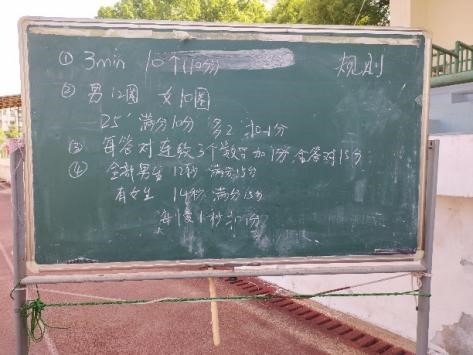 ① 3min 10个(10分) 规则
② 男12圈 女10圈
25" 满分10分 多2" 扣1分
③ 每答对连续3个数字加1分 全答对15分
④ 全部男生 12秒 满分15分
有女生 14秒 满分15分
每慢1秒扣1分